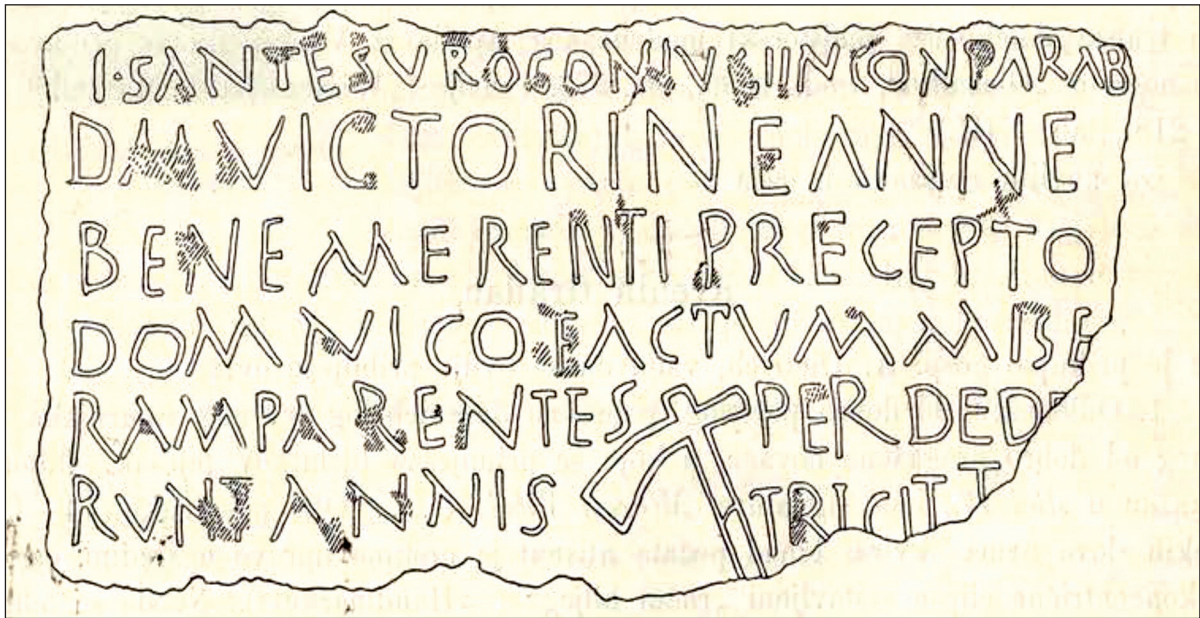 I·SANTESVROCONIVGIINCONPARAB
DM VICTORINE ANNE
BENE MERENTI PRECEPTO
DOMNICO EACTVM MISE
RAM PARENTES PERDEDE
RVNT ANNIS TRICITT